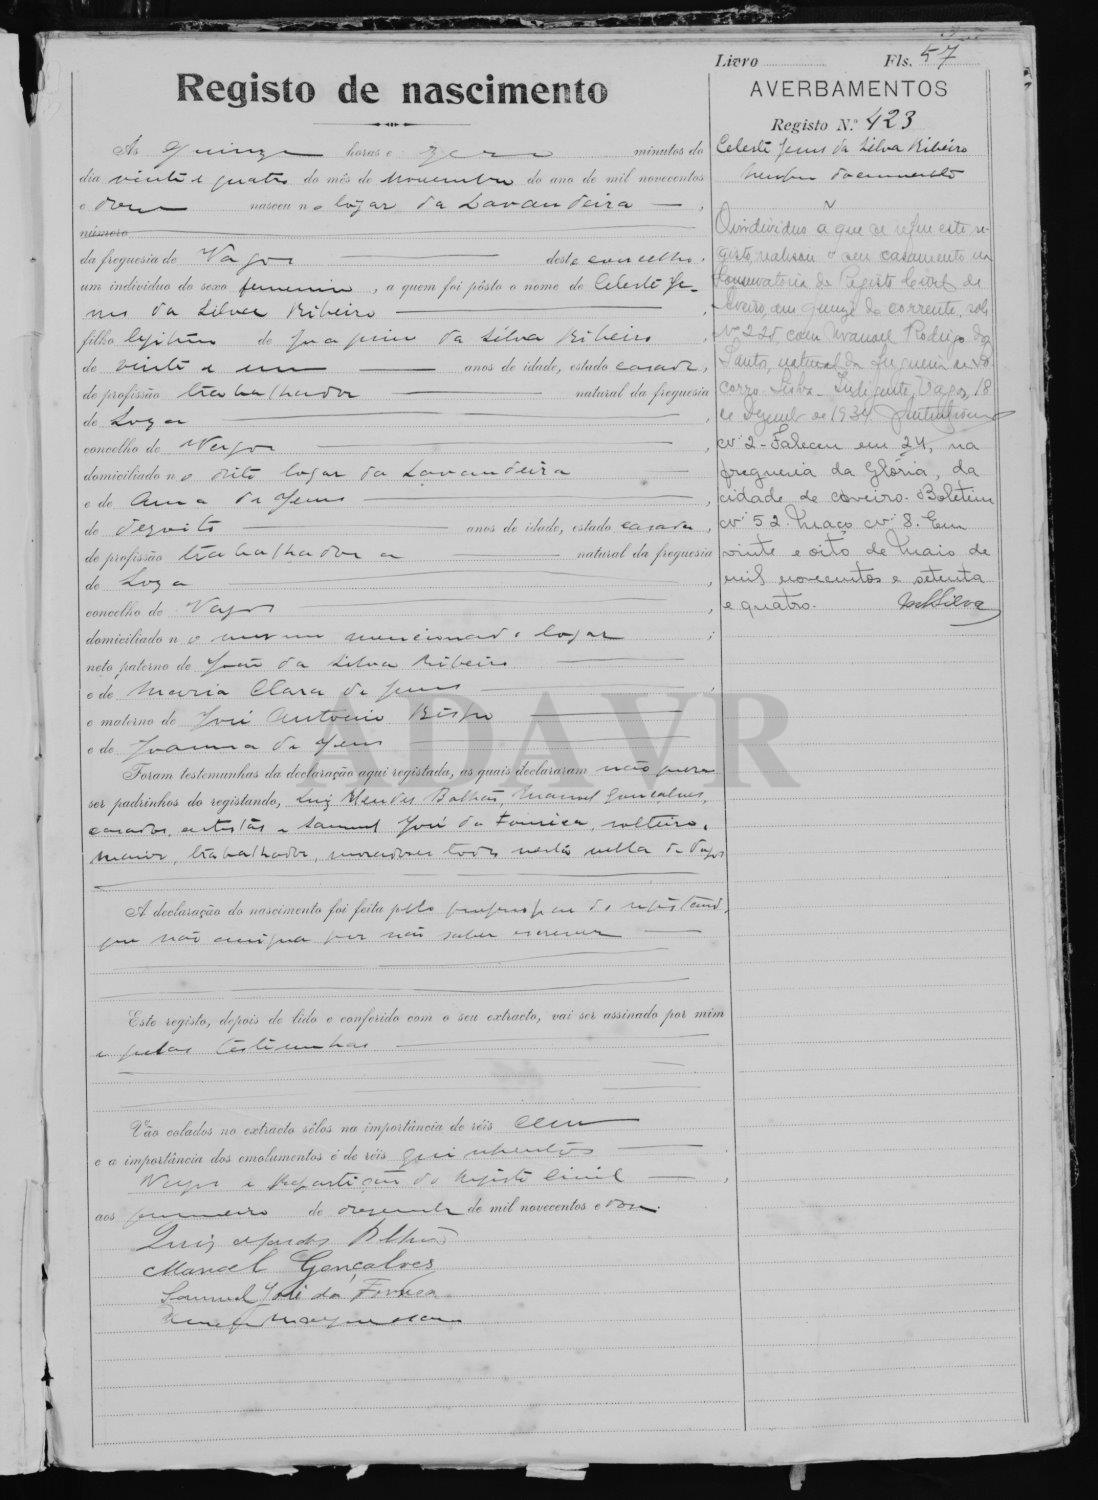 Livro Fls. 57
Registo de nascimento
AVERBAMENTOS
Registo N.º 423
Ás Quinze horas e zero minutos do
dia vinte e quatro do mês de Novembro do ano de mil novecentos
e doze nasceu no logar da Lavandeira,
número
da freguesia de Vagos deste concelho,
um indivíduo do sexo femenino, a quem foi pôsto o nome de Celeste Je-
sus da Silva Ribeiro
filho legitimo de Joaquim da Silva Ribeiro
de vinte e um anos de idade, estado casado,
de profissão trabalhador natural da freguesia
de Soza,
concelho de Vagos
domiciliado no dito logar da Lavandeira
e de Anna de Jesus,
de dezoito anos de idade, estado casada,
de profissão trabalhadora natural da freguesia
de Soza,
concelho de Vagos,
domiciliado no mesmo mencionado logar;
neto paterno de João da Silva Ribeiro
e de Maria Clara de Jesus,
e materno de José Antonio Bispo
e de Joanna de Jesus
Foram testemunhas da declaração aqui registada, as quais declararam não querer
ser padrinhos do registando, Luiz Mendes Bolhão, Manuel Gonçalves,
casados, artistas e Samuel José da Fonseca, solteiro,
maior, trabalhador, moradores todos nesta villa de Vagos
A declaração do nascimento foi feita pelo proprio pae do registando,
que não assigna por não saber escrever
Este registo, depois de lido e conferido com o seu extracto, vai ser assinado por mim
e pelas testemunhas
Vão colados no extracto sêlos na importância de réis cem
e a importância dos emolumentos é de réis quinhentos
Vagos e Repartição do Registo Civil,
aos primeiro de dezembro de mil novecentos e doze.
Luiz Mendes Bolhão
Manoel Gonçalves
Samuel José da Fonseca
Celeste Jesus da Silva Ribeiro
Nenhum documento
O individuo a que se refere este re-
gisto, realisou o seu casamento na
Conservatória do Registo Civil de
Aveiro, em quinze do corrente, sob
Nº 220, com Manoel Rodrigo dos
Santos, natural da freguesia de So-
corro - Lisboa - Indigente, Vagos, 18
de Dezembro de 1934.
Nº 2 - Faleceu em 24, na
freguesia da Glória, da
cidade de Aveiro. Boletim
Nº 52. Maço Nº 8. Em
vinte e oito de Maio de
mil novecentos e setenta
e quatro.
ADAVR